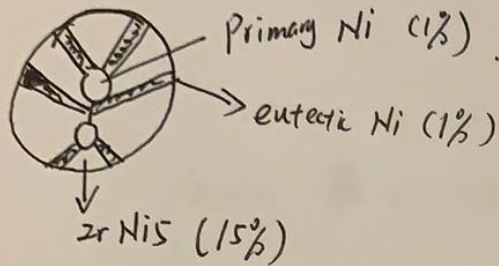 Primary Ni (1%)
eutectic Ni (1%)
Zr Ni5 (15%)